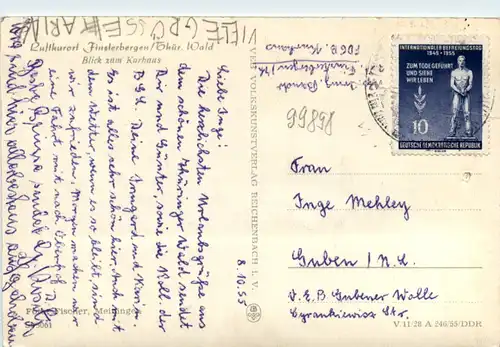 VIELE GRÜSSE KARIN
Luftkurort Finsterbergen/Thür. Wald
Blick zum Kurhaus
Liebe Inge!
Die herzlichsten Urlaubsgrüße aus
dem schönen Thüringer Wald sendet
Dir und Günter, sowie die Koll. der
BGL. Deine Irmgard und Kurt.
Es ist alles sehr schön hier. Auch mit
dem Wetter, wenn es so bleibt sind
wir zufrieden. Morgen machen wir
eine Fahrt mit nach
Foto: Fischer, Meiningen
8.10.55
VEB VOLKSKUNSTVERLAG REICHENBACH I. V.
FDGB. Kurhaus
Finsterbergen
99898
INTERNATIONALER BEFREIUNGSTAG
1945 - 1955
ZUM TODE GEFÜHRT
UND SIEHE
WIR LEBEN
10
DEUTSCHE DEMOKRATISCHE REPUBLIK
Frau
Inge Mehley
Guben / N.L.
V.E.B Gubener Wolle
Cyrankiewicz Str.
V 11/28 A 246/55/DDR